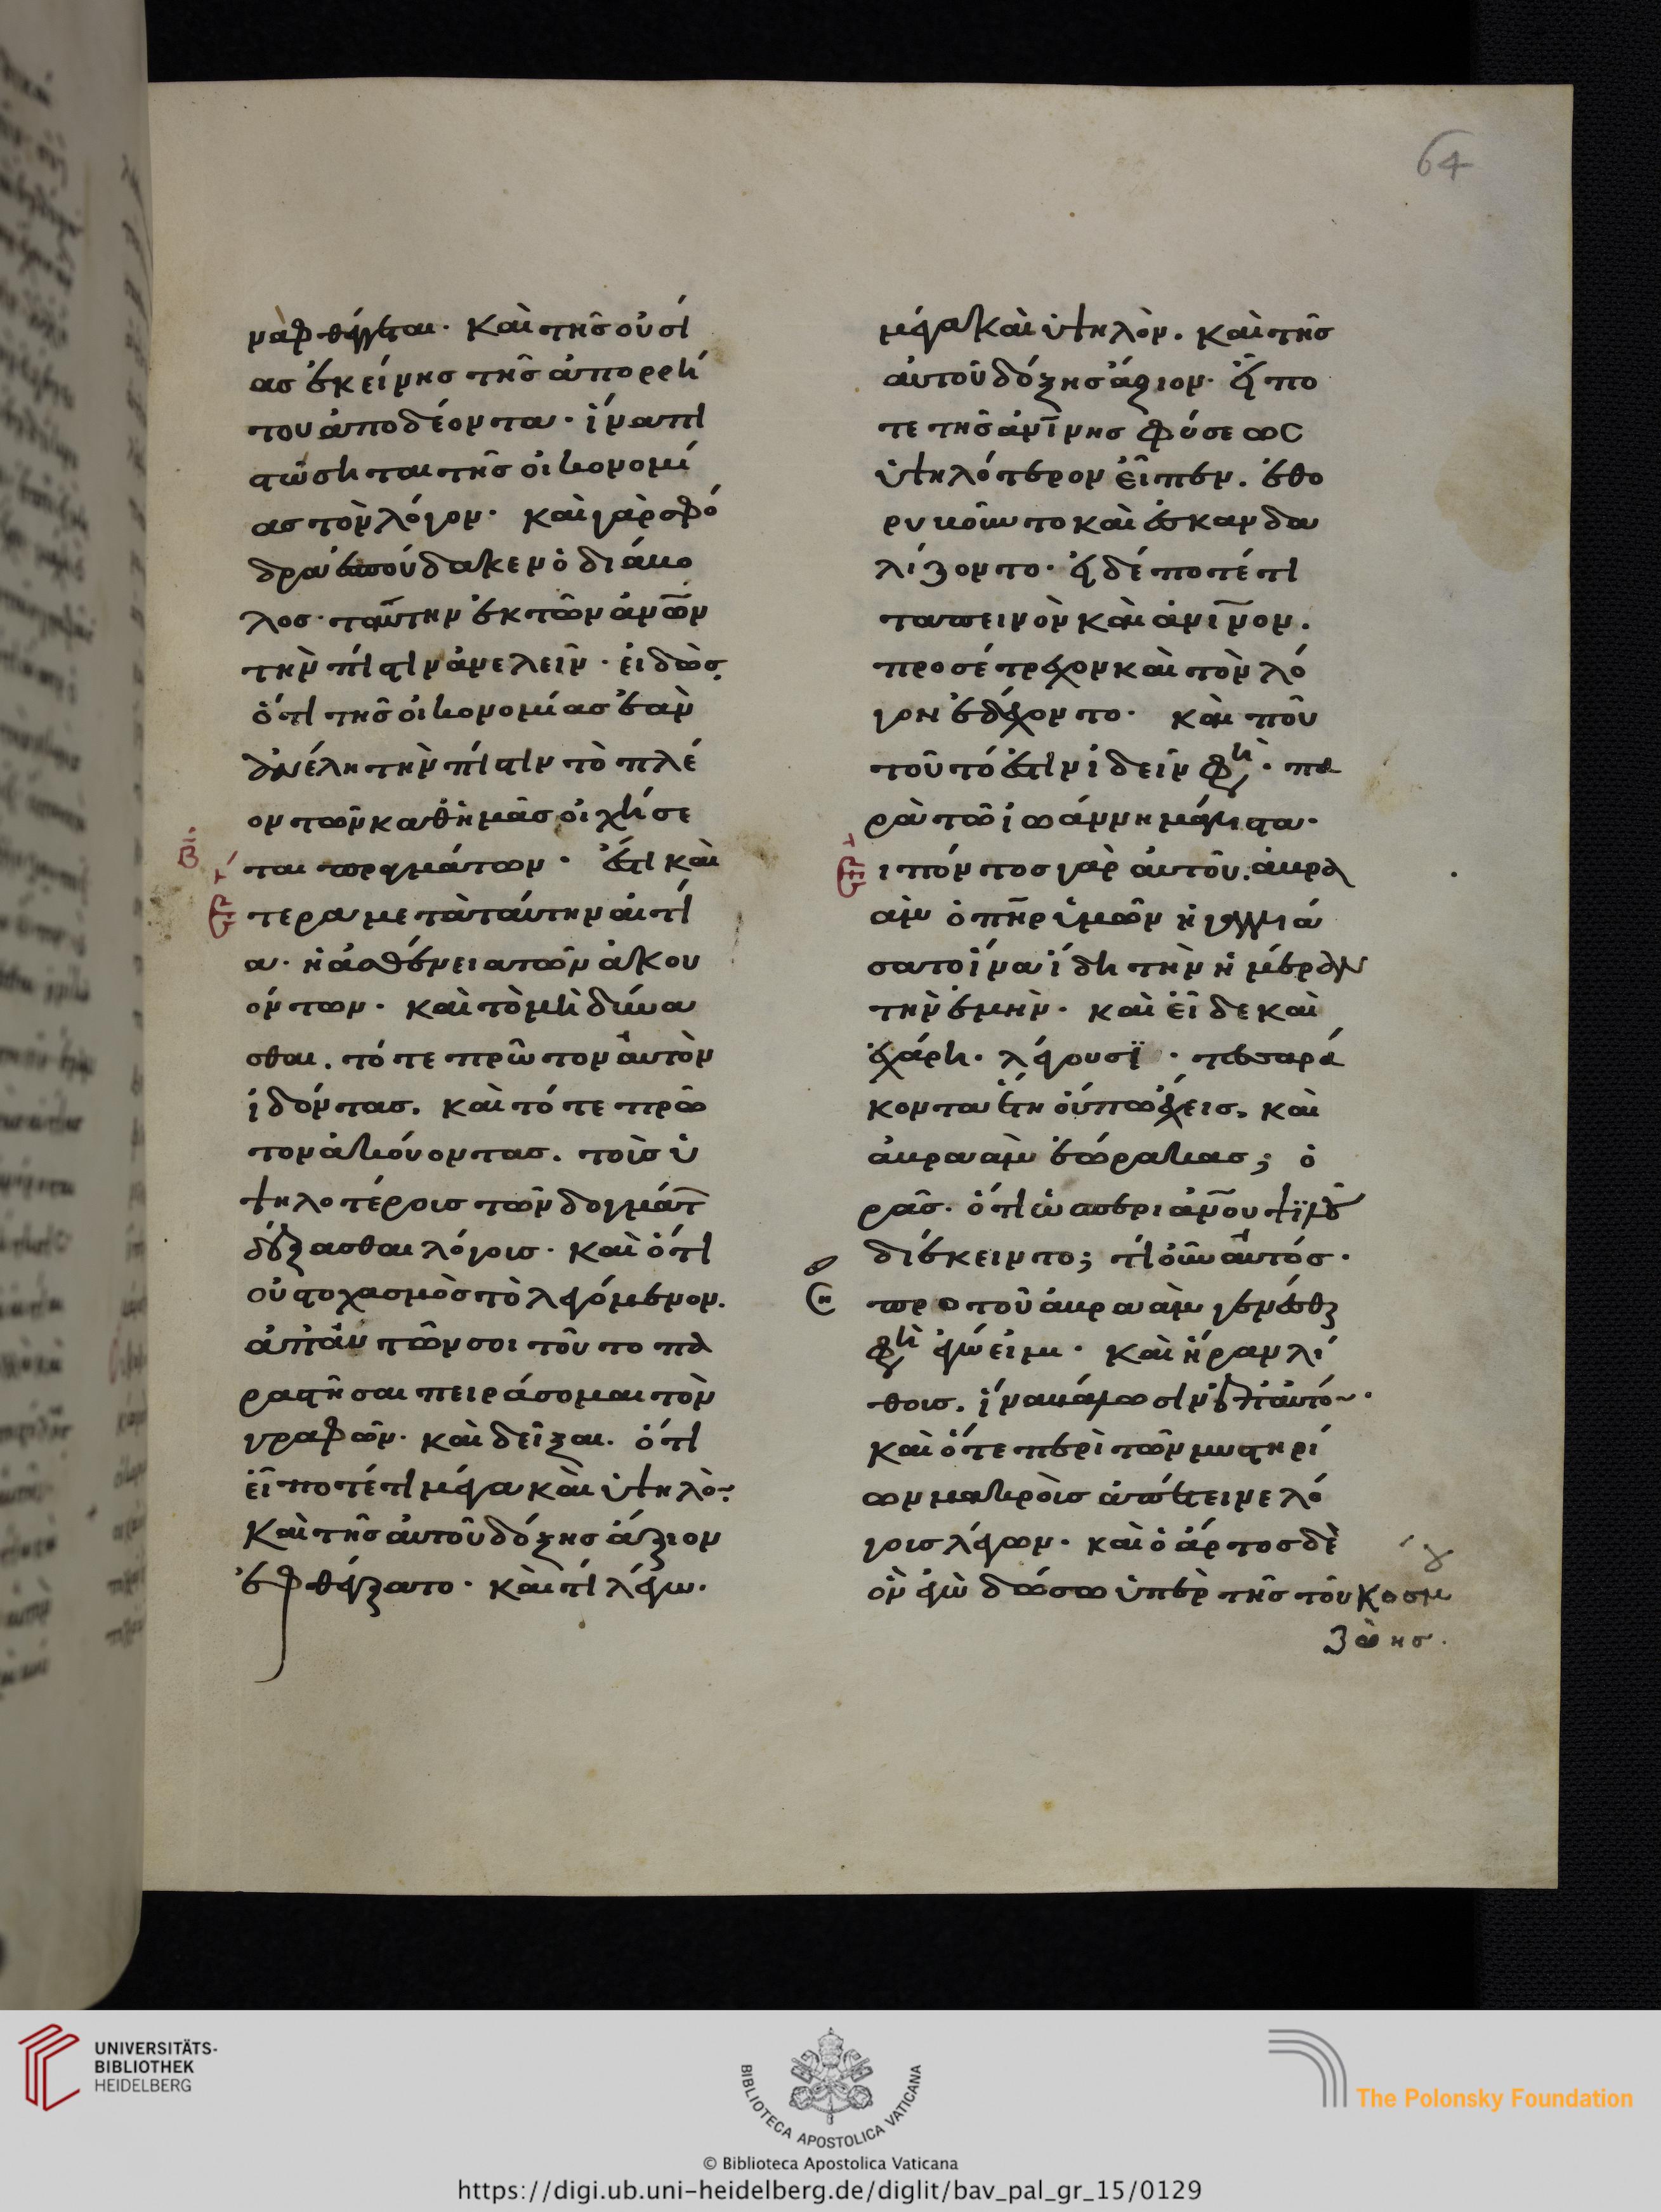 64
να φθέγγεται· καὶ τῆς οὐσί
ας ἐκείνης τῆς ἀπορρή
του ἀποδέοντα· ἵνα πι
στώσηται τῆς οἰκονομί
ας τὸν λόγον· καὶ γὰρ σφό
δρα ἐσπούδακεν ὁ διάβο
λος· ταύτην ἐκ τῶν ἀνῶν
τὴν πίστιν ἀνελεῖν· εἰδὼς
ὅτι τῆς οἰκονομίας ἐὰν
ἀνέλη τὴν πίστιν τὸ πλέ
ον τῶν καθ' ἡμᾶς οἰχήσε
ται πραγμάτων· ἔστι καὶ
ἑτέρα μετὰ ταύτην αἰτί
α· ἡ ἀσθένεια τῶν ἀκου
όντων· καὶ τὸ μὴ δύνα
σθαι, τότε πρῶτον αὐτὸν
ἰδόντας, καὶ τότε πρῶ
τον ἀκούοντας, τοῖς ὑ
ψηλοτέροις τῶν δογμάτ
δέξασθαι λόγοις· καὶ ὅτι
οὐ στοχασμὸς τὸ λεγόμενον.
ἀπ' αὐτῶν σοι τοῦτο πα
ραστῆσαι πειράσομαι τῶν
γραφῶν· καὶ δεῖξαι, ὅτι
εἴ ποτέ τι μέγα καὶ ὑψηλὸν
καὶ τῆς αὐτοῦ δόξης ἄξιον
ἐφθέγξατο· καὶ τί λέγω·
μέγα καὶ ὑψηλὸν, καὶ τῆς
αὐτοῦ δόξης ἄξιον· εἴ πο
τε τῆς ἀνίνης φύσεως
ὑψηλότερον εἶπεν, ἐθο
ρυβοῦντο καὶ ἐσκανδα
λίζοντο· εἰ δέ ποτέ τι
ταπεινὸν καὶ ἀνινον,
προσέτρεχον καὶ τὸν λό
γον ἐδέχοντο· καὶ ποῦ
τοῦτό ἐστιν ἰδεῖν φησὶ· πα
ρὰ τῶ ἰωάννη μάλιστα·
ιπόντος γὰρ αὐτοῦ, ἀβρα
ὰμ ὁ πῆρ ὑμῶν ἠγαλλιά
σατο ἵνα ἴδη τὴν ἡμέραν
τὴν ἐμὴν· καὶ εἶδε καὶ
ἐχάρη· λέγουσϊ· τεσσαρά
κοντα ἔτη οὔπω ἔχεις, καὶ
ἀβραὰμ ἑώρακας; ὁ
ρᾶς· ὅτι ὡς περὶ ἀνου ψιλοῦ
διέκειντο; τί οὖν αὐτός·
πρὸ τοῦ ἀβραὰμ γενέσθαι
φησὶ ἐγώ εἰμι· καὶ ἦραν λί
θους, ἵνα βάλωσιν ἐπ' αὐτόν·
καὶ ὅτε περὶ τῶν μυστηρί
ων μακροὺς ἀπέτεινε λό
γους λέγων· καὶ ὁ ἄρτος δὲ
ὃν ἐγὼ δώσω ὑπὲρ τῆς τοῦ κοσμ
ζωης.
UNIVERSITÄTS-
BIBLIOTHEK
HEIDELBERG
BIBLIOTECA APOSTOLICA VATICANA
The Polonsky Foundation
© Biblioteca Apostolica Vaticana
https://digi.ub.uni-heidelberg.de/diglit/bav_pal_gr_15/0129